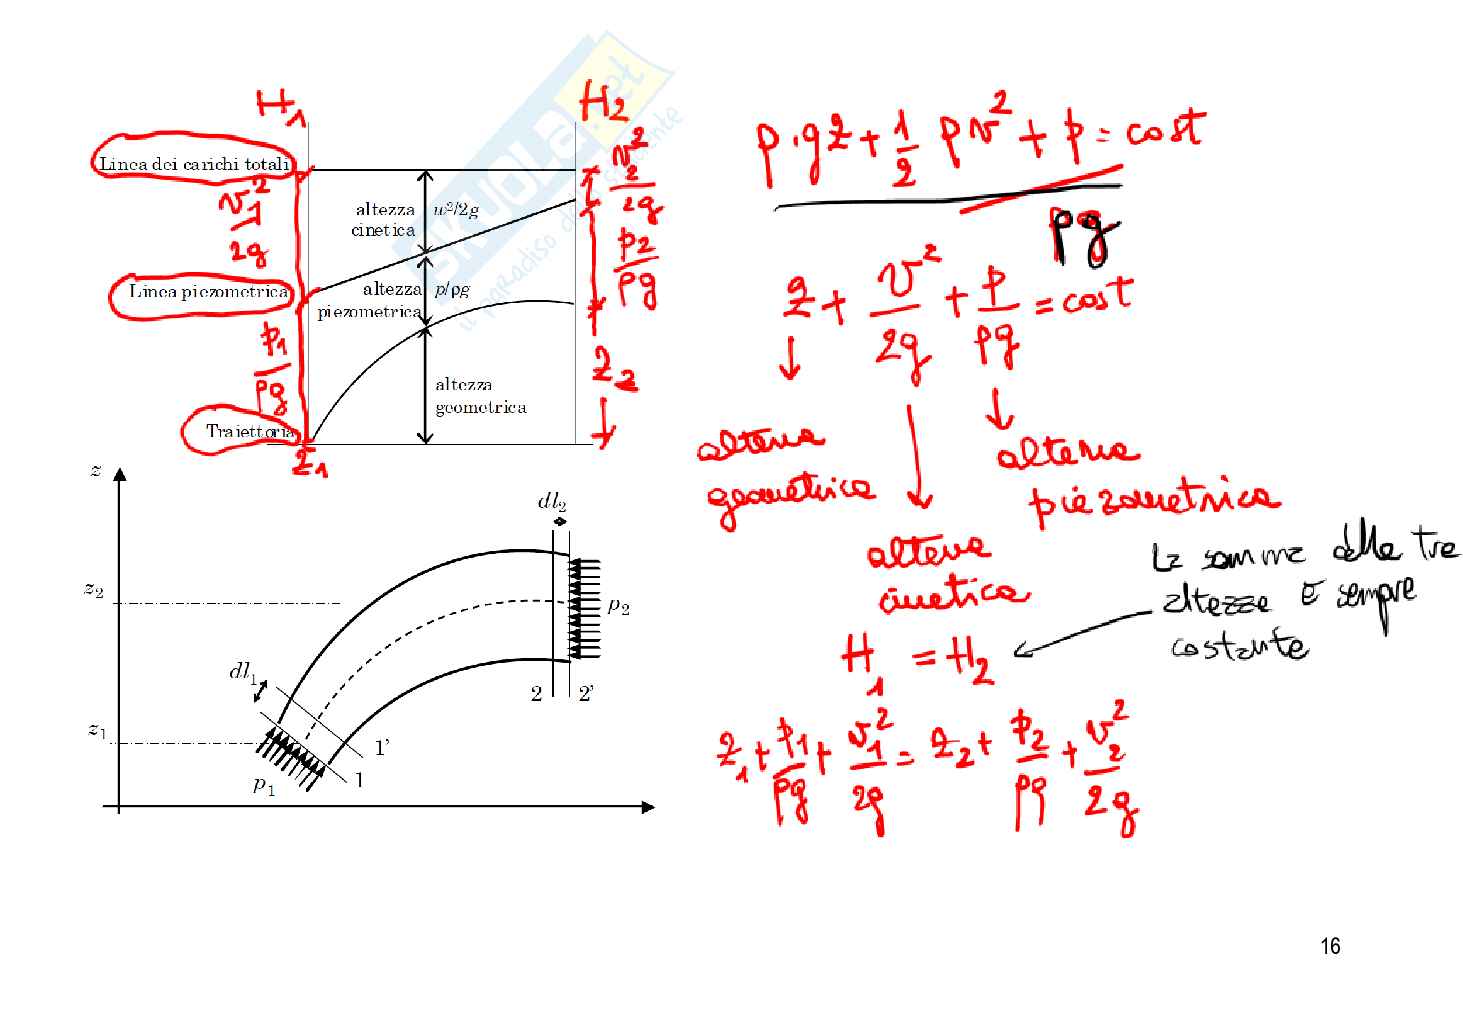 H₁
H₂
Linea dei carichi totali
v₁²/2g
altezza
cinetica
w²/2g
v₂²/2g
Linea piezometrica
altezza
piezometrica
p/ρg
p₂/ρg
p₁/ρg
altezza
geometrica
z₂
Traiettoria
z₁
SKUOLA.net
il paradiso dello studente
ρ·gz + 1/2 ρv² + p = cost
ρg
z + v²/2g + p/ρg = cost
altezza
geometrica
altezza
piezometrica
altezza
cinetica
La somma delle tre
altezze è sempre
costante
H₁ = H₂
z₁ + p₁/ρg + v₁²/2g = z₂ + p₂/ρg + v₂²/2g
z
dl₂
z₂
p₂
dl₁
2
2'
z₁
1'
1
p₁
16